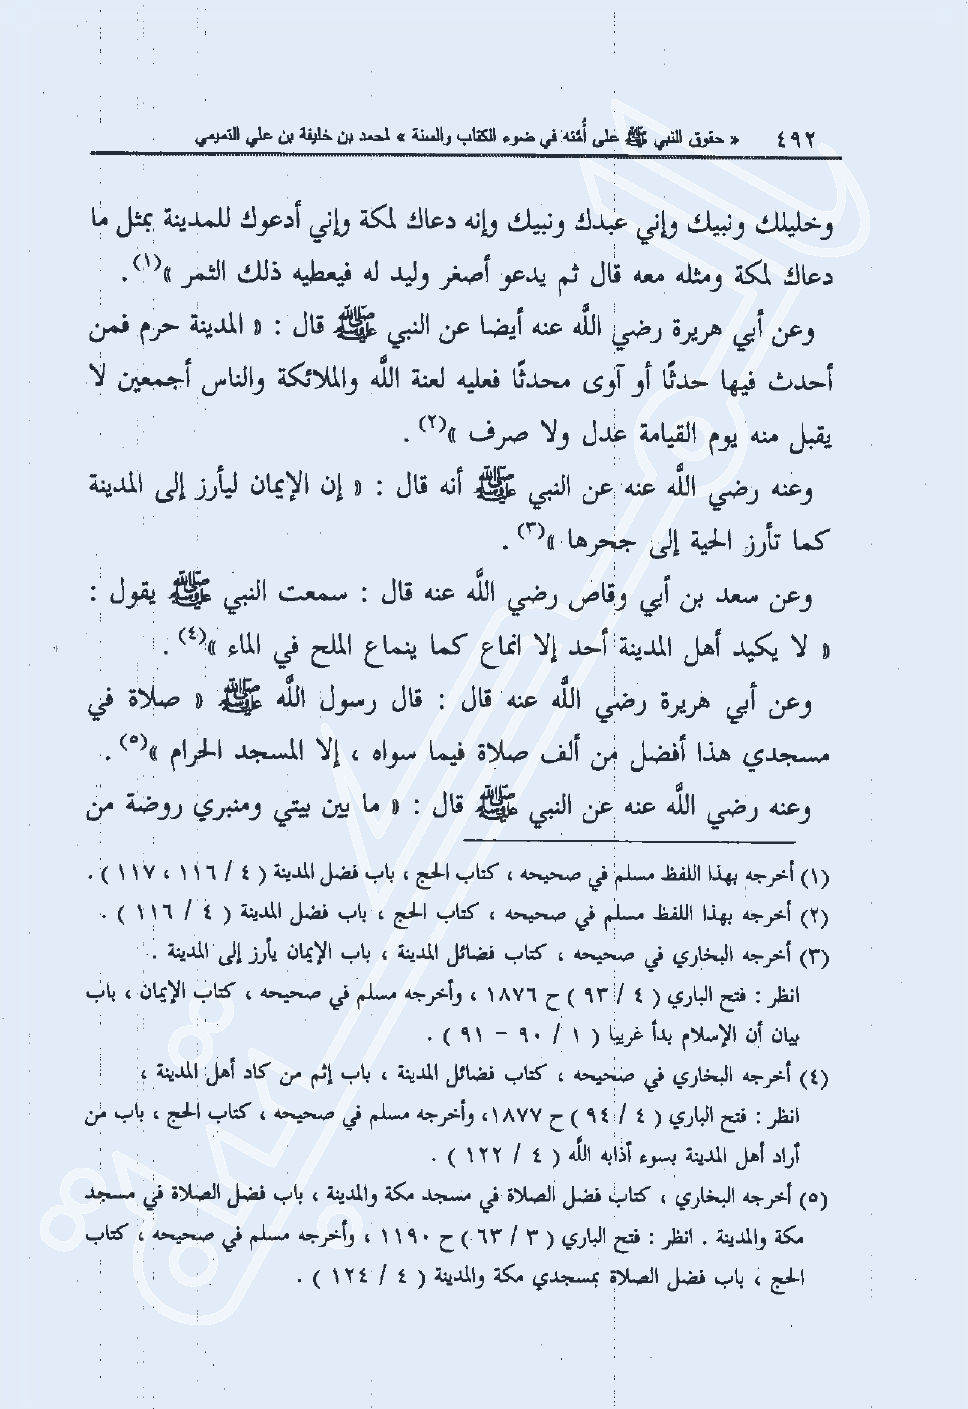 ٤٩٢ « حقوق النبي ﷺ على أُمَّته في ضوء الكتاب والسنة » لمحمد بن خليفة بن علي التميمي
وخليلك ونبيك وإني عبدك ونبيك وإنه دعاك لمكة وإني أدعوك للمدينة بمثل ما
دعاك لمكة ومثله معه قال ثم يدعو أصغر وليد له فيعطيه ذلك الثمر »(١) .
وعن أبي هريرة رضي اللَّه عنه أيضا عن النبي ﷺ قال : « المدينة حرم فمن
أحدث فيها حدثًا أو آوى محدثًا فعليه لعنة اللَّه والملائكة والناس أجمعين لا
يقبل منه يوم القيامة عدل ولا صرف »(٢) .
وعنه رضي اللَّه عنه عن النبي ﷺ أنه قال : « إن الإيمان ليأرز إلى المدينة
كما تأرز الحية إلى جحرها »(٣) .
وعن سعد بن أبي وقاص رضي اللَّه عنه قال : سمعت النبي ﷺ يقول :
« لا يكيد أهل المدينة أحد إلا انماع كما ينماع الملح في الماء »(٤) .
وعن أبي هريرة رضي اللَّه عنه قال : قال رسول اللَّه ﷺ « صلاة في
مسجدي هذا أفضل من ألف صلاة فيما سواه ، إلا المسجد الحرام »(٥) .
وعنه رضي اللَّه عنه عن النبي ﷺ قال : « ما بين بيتي ومنبري روضة من
(١) أخرجه بهذا اللفظ مسلم في صحيحه ، كتاب الحج ، باب فضل المدينة ( ٤ / ١١٦ ، ١١٧ ) .
(٢) أخرجه بهذا اللفظ مسلم في صحيحه ، كتاب الحج ، باب فضل المدينة ( ٤ / ١١٦ ) .
(٣) أخرجه البخاري في صحيحه ، كتاب فضائل المدينة ، باب الإيمان يأرز إلى المدينة .
انظر : فتح الباري ( ٤ / ٩٣ ) ح ١٨٧٦ ، وأخرجه مسلم في صحيحه ، كتاب الإيمان ، باب
بيان أن الإسلام بدأ غريبا ( ١ / ٩٠ - ٩١ ) .
(٤) أخرجه البخاري في صحيحه ، كتاب فضائل المدينة ، باب إثم من كاد أهل المدينة ،
انظر : فتح الباري ( ٤ / ٩٤ ) ح ١٨٧٧، وأخرجه مسلم في صحيحه ، كتاب الحج ، باب من
أراد أهل المدينة بسوء أذابه اللَّه ( ٤ / ١٢٢ ) .
(٥) أخرجه البخاري ، كتاب فضل الصلاة في مسجد مكة والمدينة ، باب فضل الصلاة في مسجد
مكة والمدينة . انظر : فتح الباري ( ٣ / ٦٣ ) ح ١١٩٠ ، وأخرجه مسلم في صحيحه ، كتاب
الحج ، باب فضل الصلاة بمسجدي مكة والمدينة ( ٤ / ١٢٤ ) .